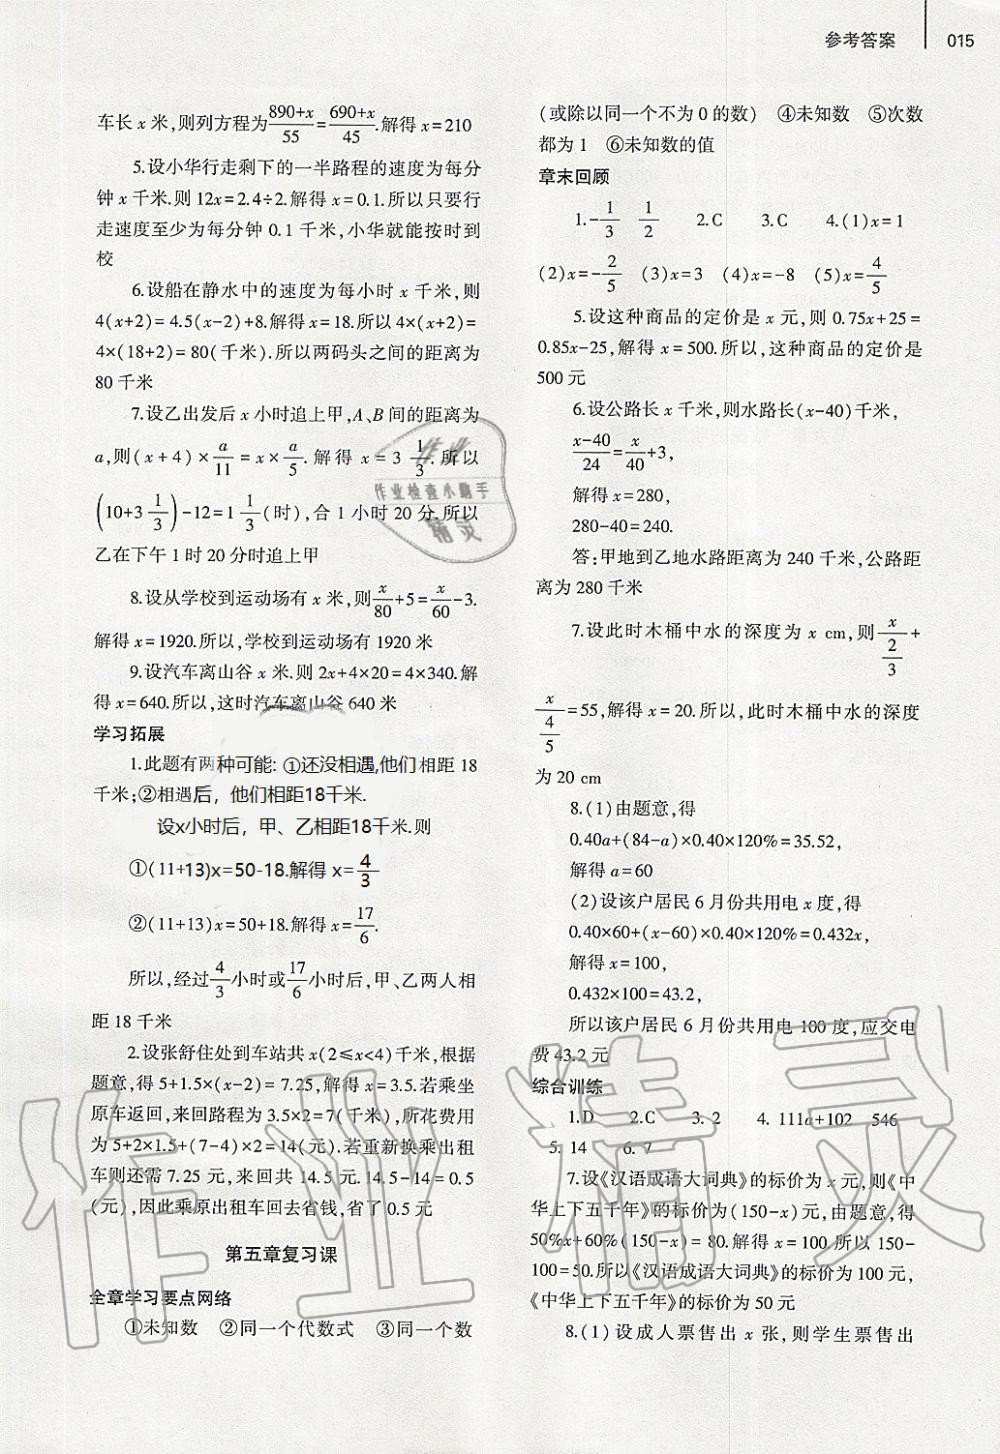 参考答案 015
车长 x 米,则列方程为(890+x)/55=(690+x)/45.解得 x=210
5.设小华行走剩下的一半路程的速度为每分
钟 x 千米.则 12x=2.4÷2.解得 x=0.1.所以只要行
走速度至少为每分钟 0.1 千米,小华就能按时到
校
6.设船在静水中的速度为每小时 x 千米,则
4(x+2)=4.5(x-2)+8.解得 x=18.所以 4×(x+2)=
4×(18+2)=80(千米).所以两码头之间的距离为
80 千米
7.设乙出发后 x 小时追上甲,A、B 间的距离为
a,则(x+4)×a/11=x×a/5.解得 x=3 1/3.所以
(10+3 1/3)-12=1 1/3(时),合 1 小时 20 分.所以
乙在下午 1 时 20 分时追上甲
8.设从学校到运动场有 x 米,则x/80+5=x/60-3.
解得 x=1920.所以,学校到运动场有 1920 米
9.设汽车离山谷 x 米.则 2x+4×20=4×340.解
得 x=640.所以,这时汽车离山谷 640 米
学习拓展
1.此题有两种可能: ①还没相遇,他们相距 18
千米;②相遇后，他们相距18千米.
设x小时后，甲、乙相距18千米.则
①(11+13)x=50-18.解得 x=4/3
②(11+13)x=50+18.解得 x=17/6.
所以,经过4/3小时或17/6小时后,甲、乙两人相
距 18 千米
2.设张舒住处到车站共 x(2≤x<4)千米,根据
题意,得 5+1.5×(x-2)=7.25,解得 x=3.5.若乘坐
原车返回,来回路程为 3.5×2=7(千米),所花费用
为 5+2×1.5+(7-4)×2=14(元).若重新换乘出租
车则还需 7.25 元,来回共 14.5 元.14.5-14=0.5
(元),因此乘原出租车回去省钱,省了 0.5 元
第五章复习课
全章学习要点网络
①未知数 ②同一个代数式 ③同一个数
(或除以同一个不为 0 的数) ④未知数 ⑤次数
都为 1 ⑥未知数的值
章末回顾
1.-1/3 1/2 2.C 3.C 4.(1)x=1
(2)x=-2/5 (3)x=3 (4)x=-8 (5)x=4/5
5.设这种商品的定价是 x 元,则 0.75x+25=
0.85x-25,解得 x=500.所以,这种商品的定价是
500 元
6.设公路长 x 千米,则水路长(x-40)千米,
(x-40)/24=x/40+3,
解得 x=280,
280-40=240.
答:甲地到乙地水路距离为 240 千米,公路距
离为 280 千米
7.设此时木桶中水的深度为 x cm,则x/(2/3)+
x/(4/5)=55,解得 x=20.所以,此时木桶中水的深度
为 20 cm
8.(1)由题意,得
0.40a+(84-a)×0.40×120%=35.52,
解得 a=60
(2)设该户居民 6 月份共用电 x 度,得
0.40×60+(x-60)×0.40×120%=0.432x,
解得 x=100,
0.432×100=43.2,
所以该户居民 6 月份共用电 100 度,应交电
费 43.2 元
综合训练
1.D 2.C 3. 2 4. 111a+102 546
5. 14 6. 7
7.设《汉语成语大词典》的标价为 x 元,则《中
华上下五千年》的标价为(150-x)元,由题意,得
50%x+60%(150-x)=80.解得 x=100.所以 150-
100=50.所以《汉语成语大词典》的标价为 100 元,
《中华上下五千年》的标价为 50 元
8.(1)设成人票售出 x 张,则学生票售出
作业
作业检查小助手
精灵
作业精灵